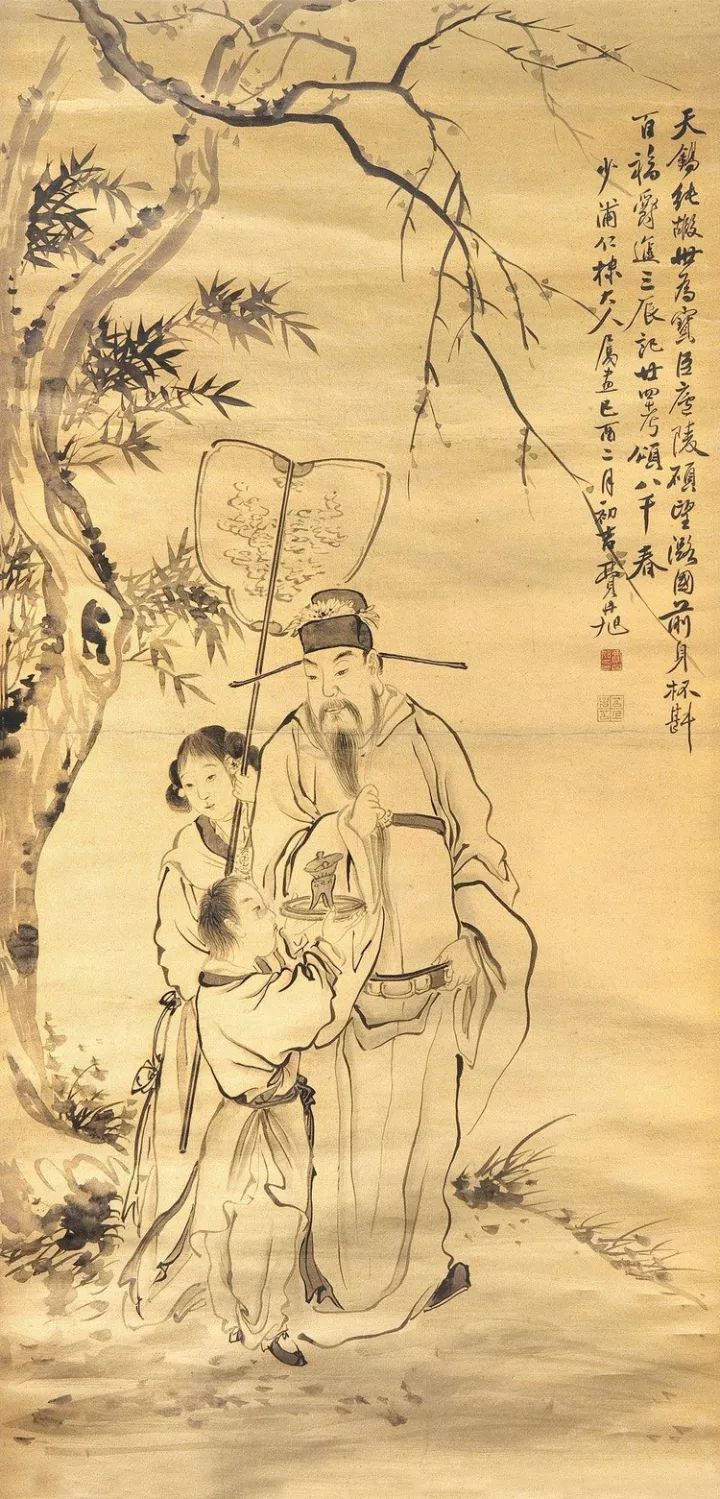 天錫純嘏世為寶臣廬陵碩望潞國前身杯斟
百福爵進三辰記廿四考頌八千春
少浦仁棣大人屬畫己酉二月初吉費丹旭